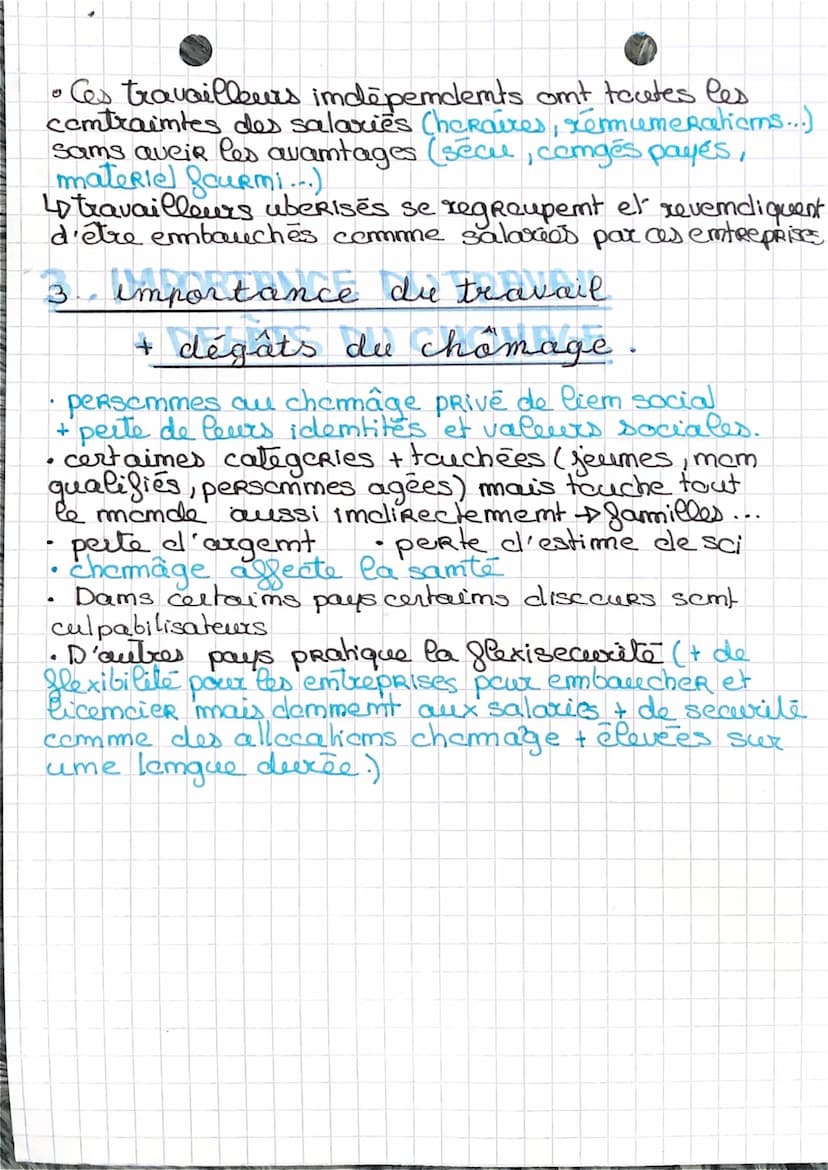 • Ces travailleurs indépendents ont toutes les
contraintes des salariés (horaires, rémunerations...)
sans avoir les avantages (sécu, congés payés,
materiel fourni...)
↳ travailleurs uberisés se regroupent et revendiquent
d'être embauchés comme salariés par ces entreprises
3. IMPORTANCE DU TRAVAIL
importance du travail
+ DEGÂTS DU CHÔMAGE
+ dégâts du chômage.
• personnes au chomâge privé de lien social
+ perte de leurs identités et valeurs sociales.
• certaines catégories + touchées (jeunes, non
qualifiés, personnes agées) mais touche tout
le monde aussi indirectement → familles...
• perte d'argent • perte d'estime de soi
• chomâge affecte la santé
• Dans certains pays certains discours sont
culpabilisateurs
• D'autres pays pratique la flexisecurité (+ de
flexibilité pour les entreprises pour embaucher et
licencier mais donnent aux salariés + de securité
comme des allocations chomage + élevées sur
une longue durée.)